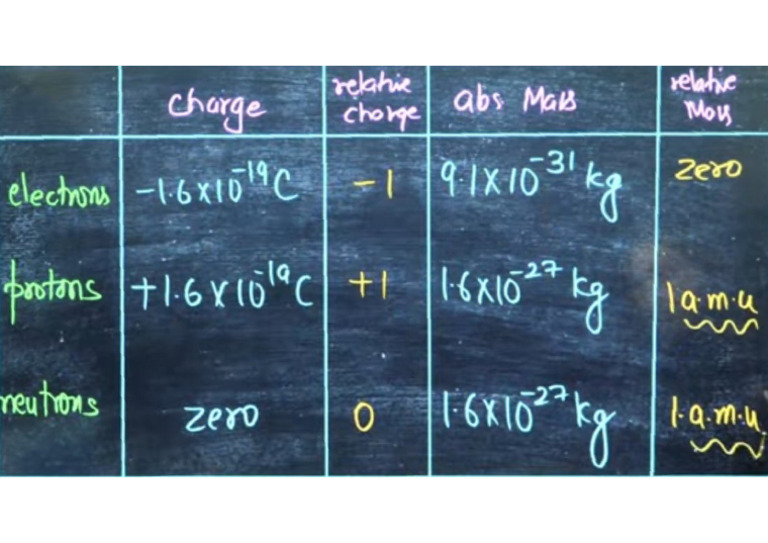 charge relative charge abs Mass relative Mass
electrons -1.6x10⁻¹⁹C -1 9.1x10⁻³¹ kg zero
protons +1.6x10⁻¹⁹C +1 1.6x10⁻²⁷ kg 1 a.m.u
neutrons zero 0 1.6x10⁻²⁷ kg 1.a.m.u.